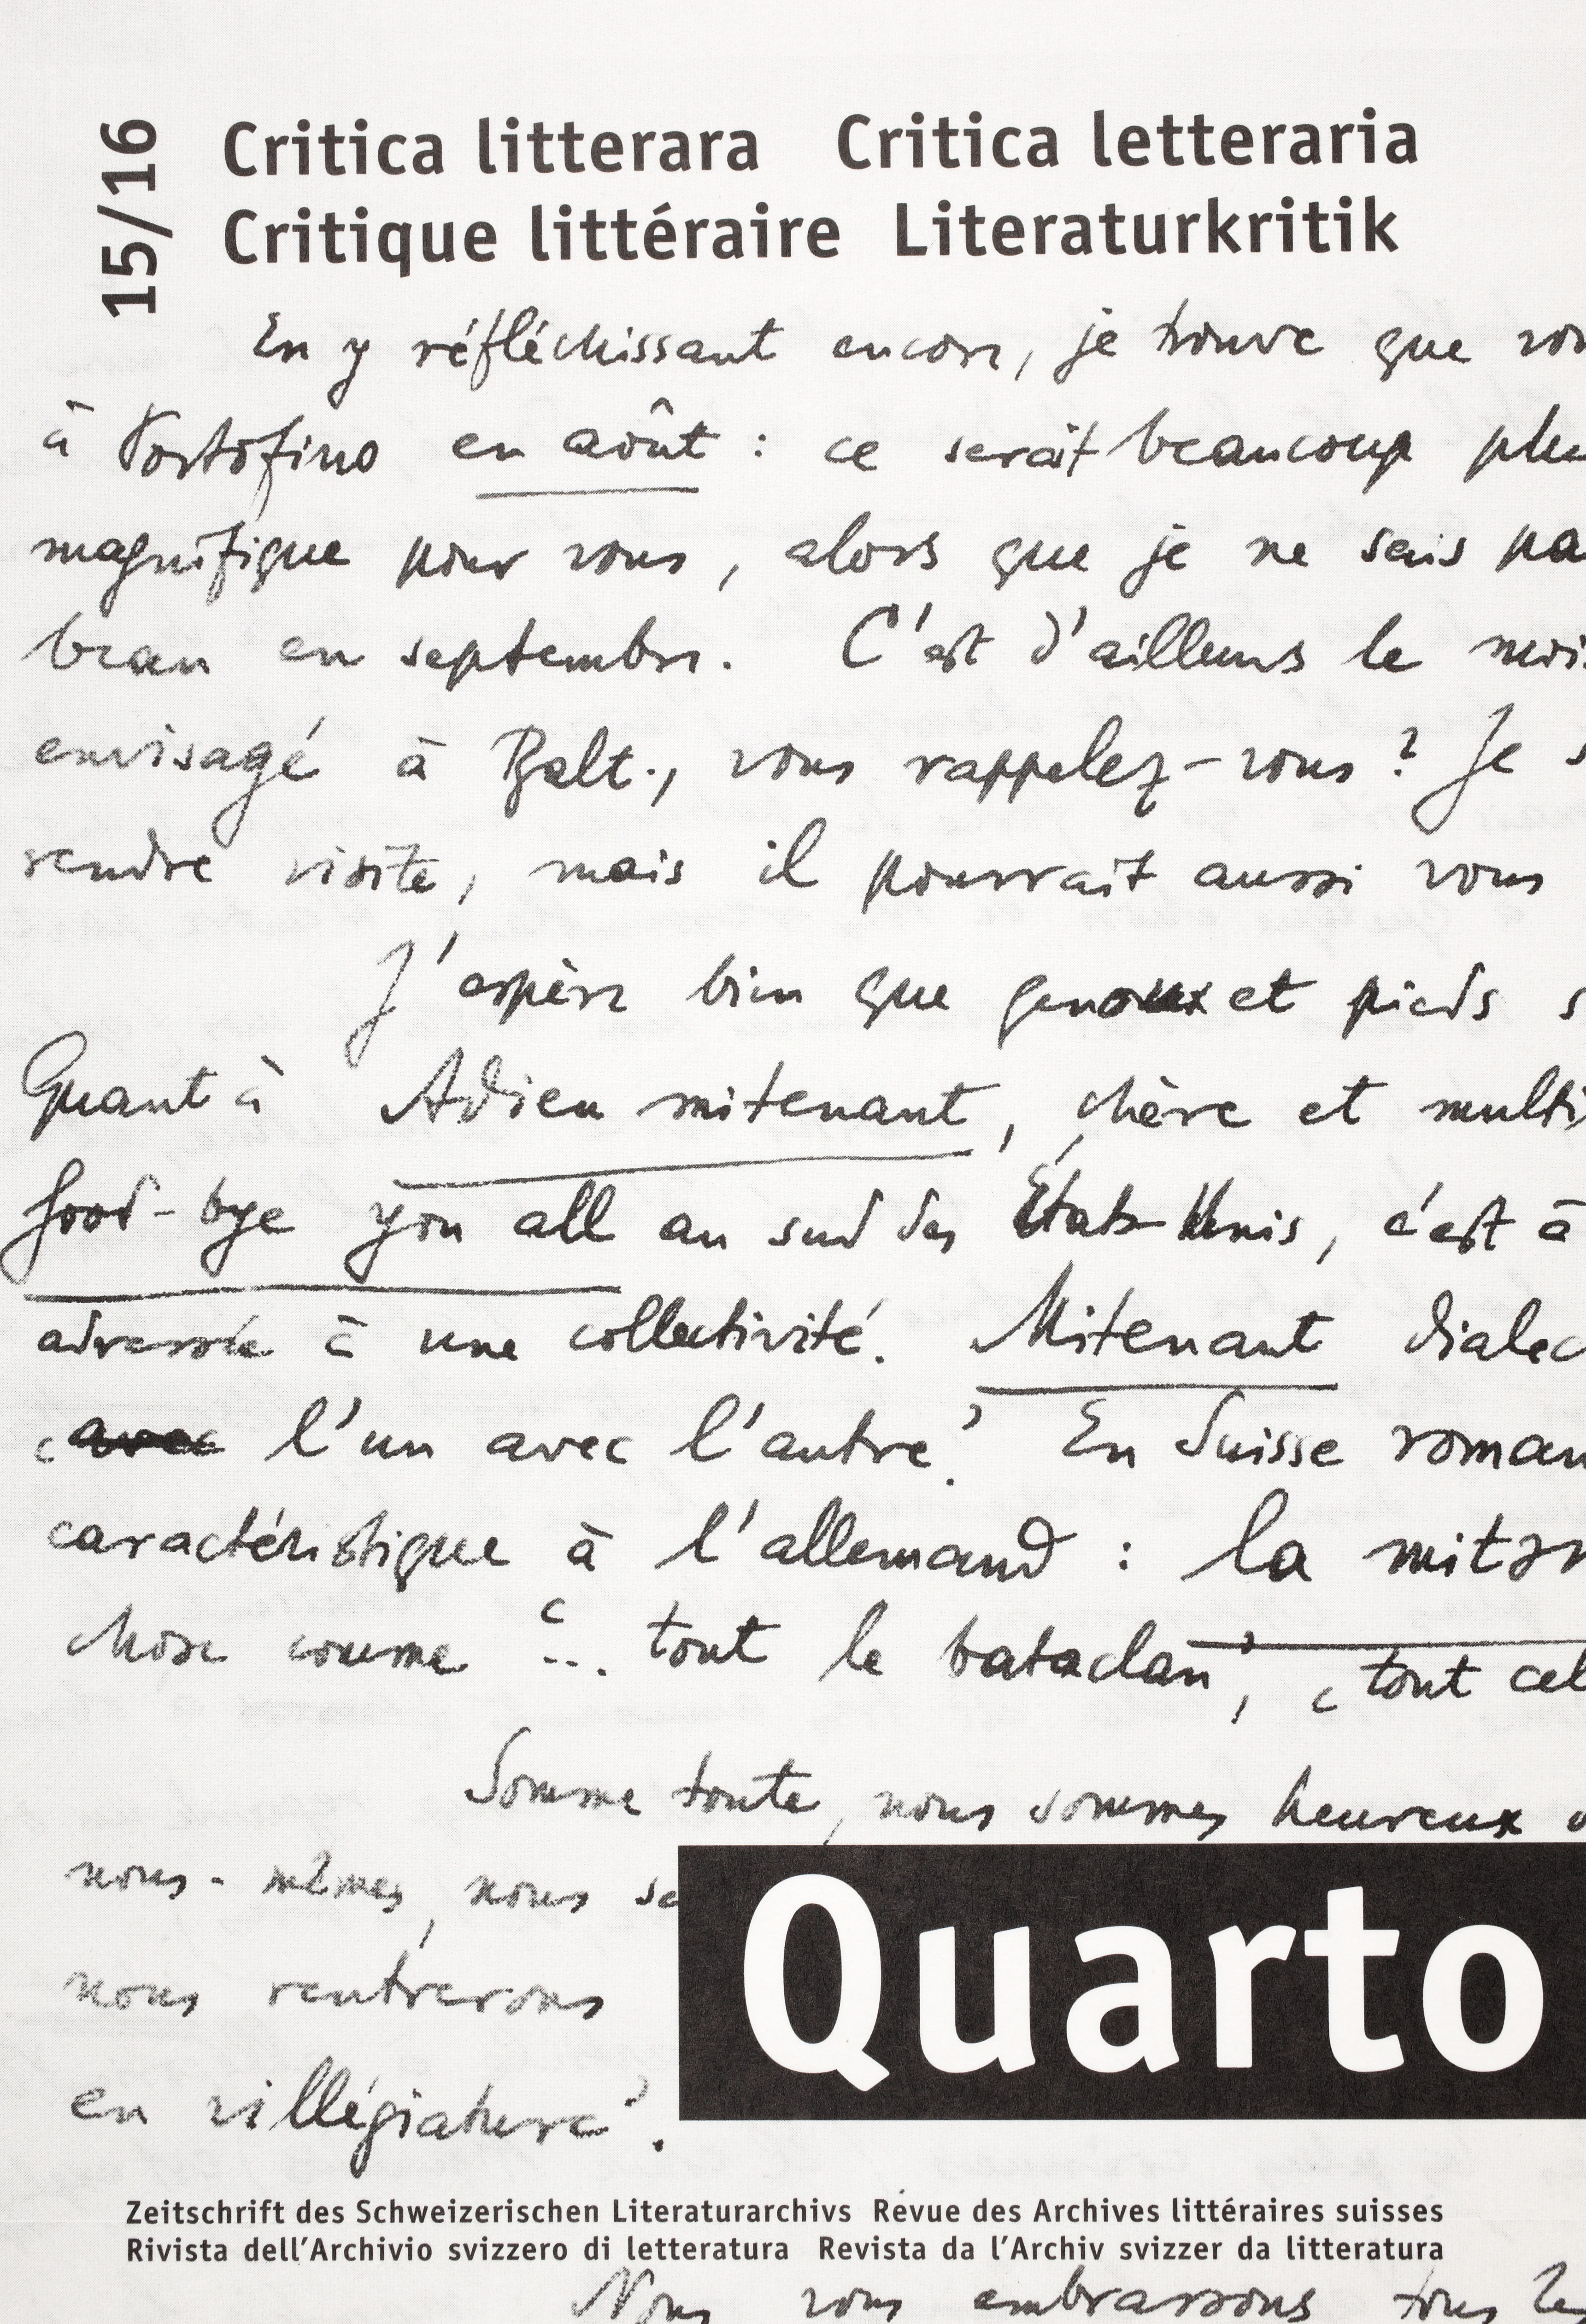 15/16
Critica litterara Critica letteraria
Critique littéraire Literaturkritik
En y réfléchissant encore, je trouve que
à Portofino en août : ce serait beaucoup plu
magnifique pour vous, alors que je ne sais pa
beau en septembre. C'est d'ailleurs le mois
envisagé à Balt., vous rappelez-vous? Je s
rendre visite, mais il pourrait aussi vous
J'espère bien que genoux et pieds s
Quant à Adieu mitenant, chère et multi
good-bye you all au sud des États-Unis, c'est à
adressée à une collectivité. Mitenant dialec
avec l'un avec l'autre'. En Suisse roman
caractéristique à l'allemand : la
chose comme '... tout le bataclan', 'tout cel
Somme toute, nous sommes heureux
nous-mêmes, nous
nous rentrerons
en villégiature'.
Quarto
Zeitschrift des Schweizerischen Literaturarchivs Revue des Archives littéraires suisses
Rivista dell'Archivio svizzero di letteratura Revista da l'Archiv svizzer da litteratura
Nous vous embrassons tous